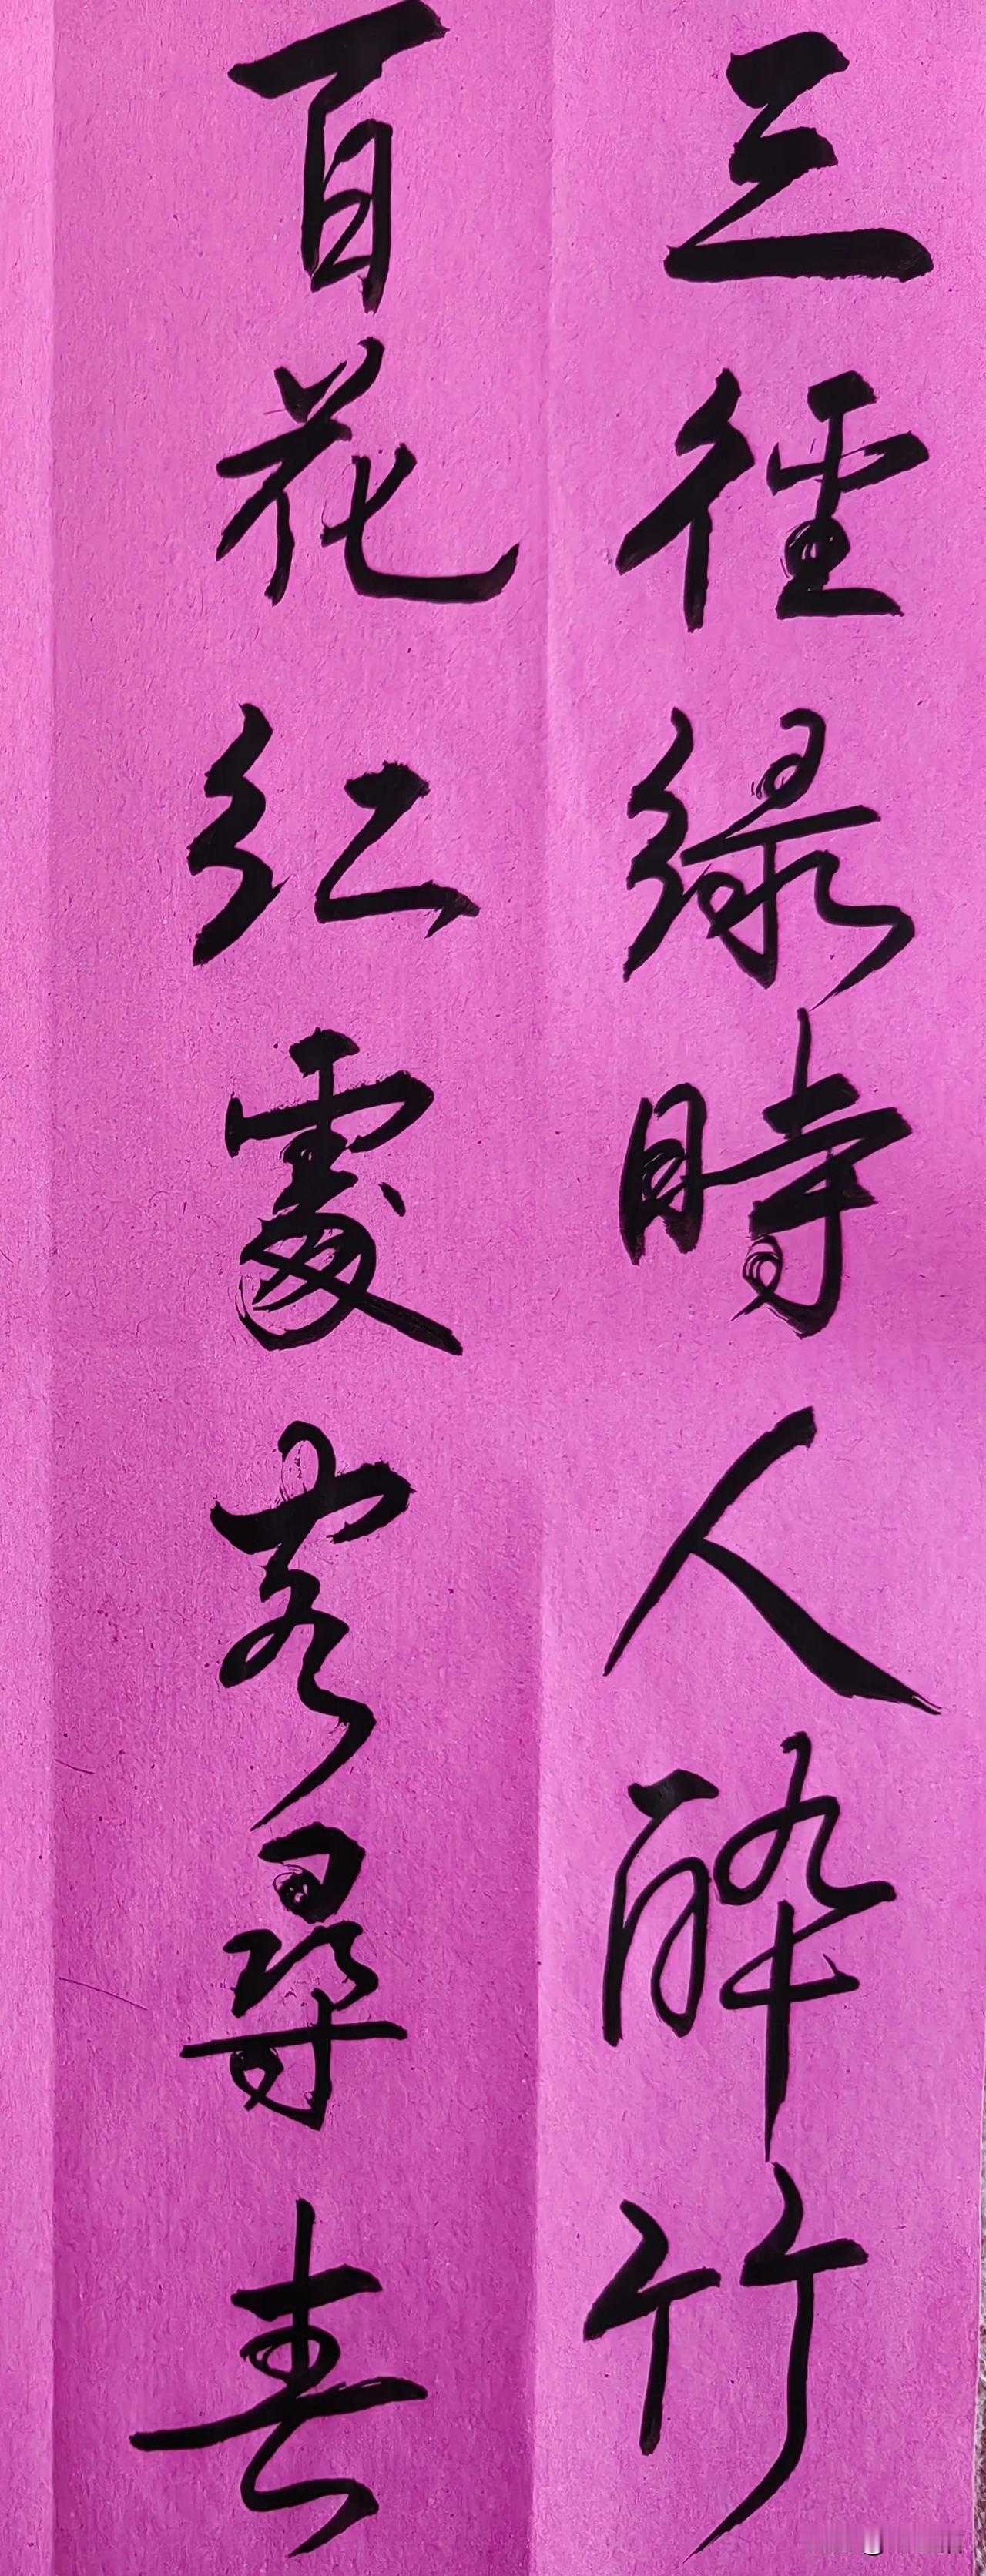 三徑綠時人醉竹
百花红處客尋春